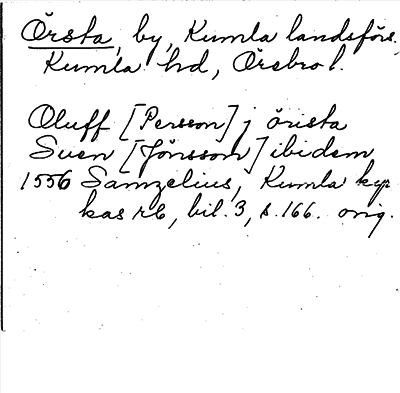 Örsta, by, Kumla landsförs.
Kumla hd, Örebro l.
Oluff [Persson] j örista
Suen [Jönsson] ibidem
1556 Samzelius, Kumla kyr
kas rb, bil. 3, s. 166. orig.